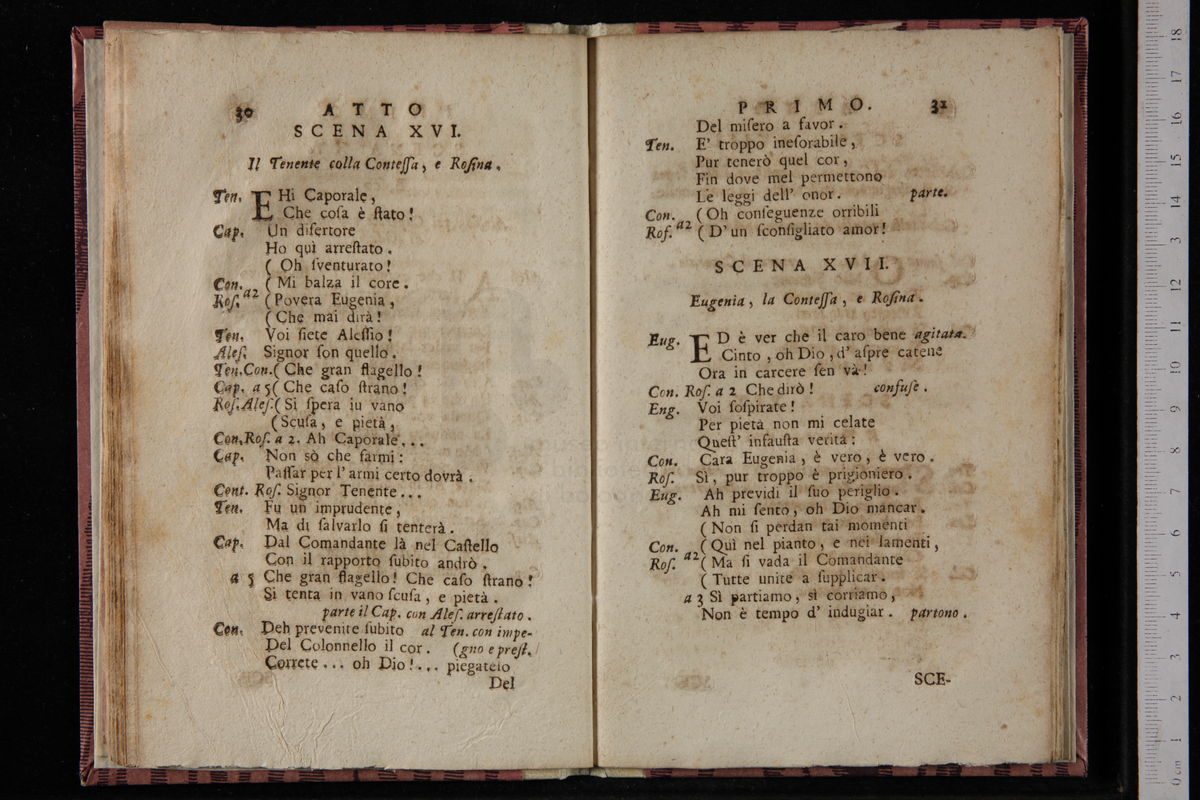 30 ATTO
SCENA XVI.
Il Tenente colla Conteſſa, e Roſina.
Ten. EHi Caporale,
Che coſa è ſtato!
Cap. Un diſertore
Ho quì arreſtato.
( Oh ſventurato!
Con. ( Mi balza il core.
Roſ. a2 (Povera Eugenia,
(Che mai dirà!
Ten. Voi ſiete Aleſſio!
Aleſ. Signor ſon quello.
Ten.Con.( Che gran flagello!
Cap. a 5( Che caſo ſtrano!
Roſ.Aleſ.( Sì ſpera iu vano
(Scuſa, e pietà,
Con.Roſ. a 2. Ah Caporale...
Cap. Non sò che farmi:
Paſſar per l'armi certo dovrà.
Cont. Roſ. Signor Tenente...
Ten. Fu un imprudente,
Ma di ſalvarlo ſi tenterà.
Cap. Dal Comandante là nel Caſtello
Con il rapporto ſubito andrò.
a 5 Che gran flagello! Che caſo ſtrano!
Si tenta in vano ſcuſa, e pietà.
parte il Cap. con Aleſ. arreſtato.
Con. Deh prevenite ſubito al Ten. con impe-
Del Colonnello il cor. (gno e preſt.
Correte... oh Dio!... piegatelo
Del
PRIMO. 31
Del miſero a favor.
Ten. E' troppo ineſorabile,
Pur tenerò quel cor,
Fin dove mel permettono
Le leggi dell' onor. parte.
Con. (Oh conſeguenze orribili
Roſ. a2 (D'un ſconſigliato amor!
SCENA XVII.
Eugenia, la Conteſſa, e Roſina.
Eug. ED è ver che il caro bene agitata.
Cinto, oh Dio, d'aſpre catene
Ora in carcere ſen và!
Con. Roſ. a 2 Che dirò! confuſe.
Eng. Voi ſoſpirate!
Per pietà non mi celate
Queſt' infauſta verità:
Con. Cara Eugenia, è vero, è vero.
Roſ. Sì, pur troppo è prigioniero.
Eug. Ah previdi il ſuo periglio.
Ah mi ſento, oh Dio mancar.
(Non ſi perdan tai momenti
Con. (Quì nel pianto, e nei lamenti,
Roſ. a2 (Ma ſi vada il Comandante
(Tutte unite a ſupplicar.
a 3 Sì partiamo, sì corriamo,
Non è tempo d' indugiar. partono.
SCE-
0 cm 1 2 3 4 5 6 7 8 9 10 11 12 13 14 15 16 17 18